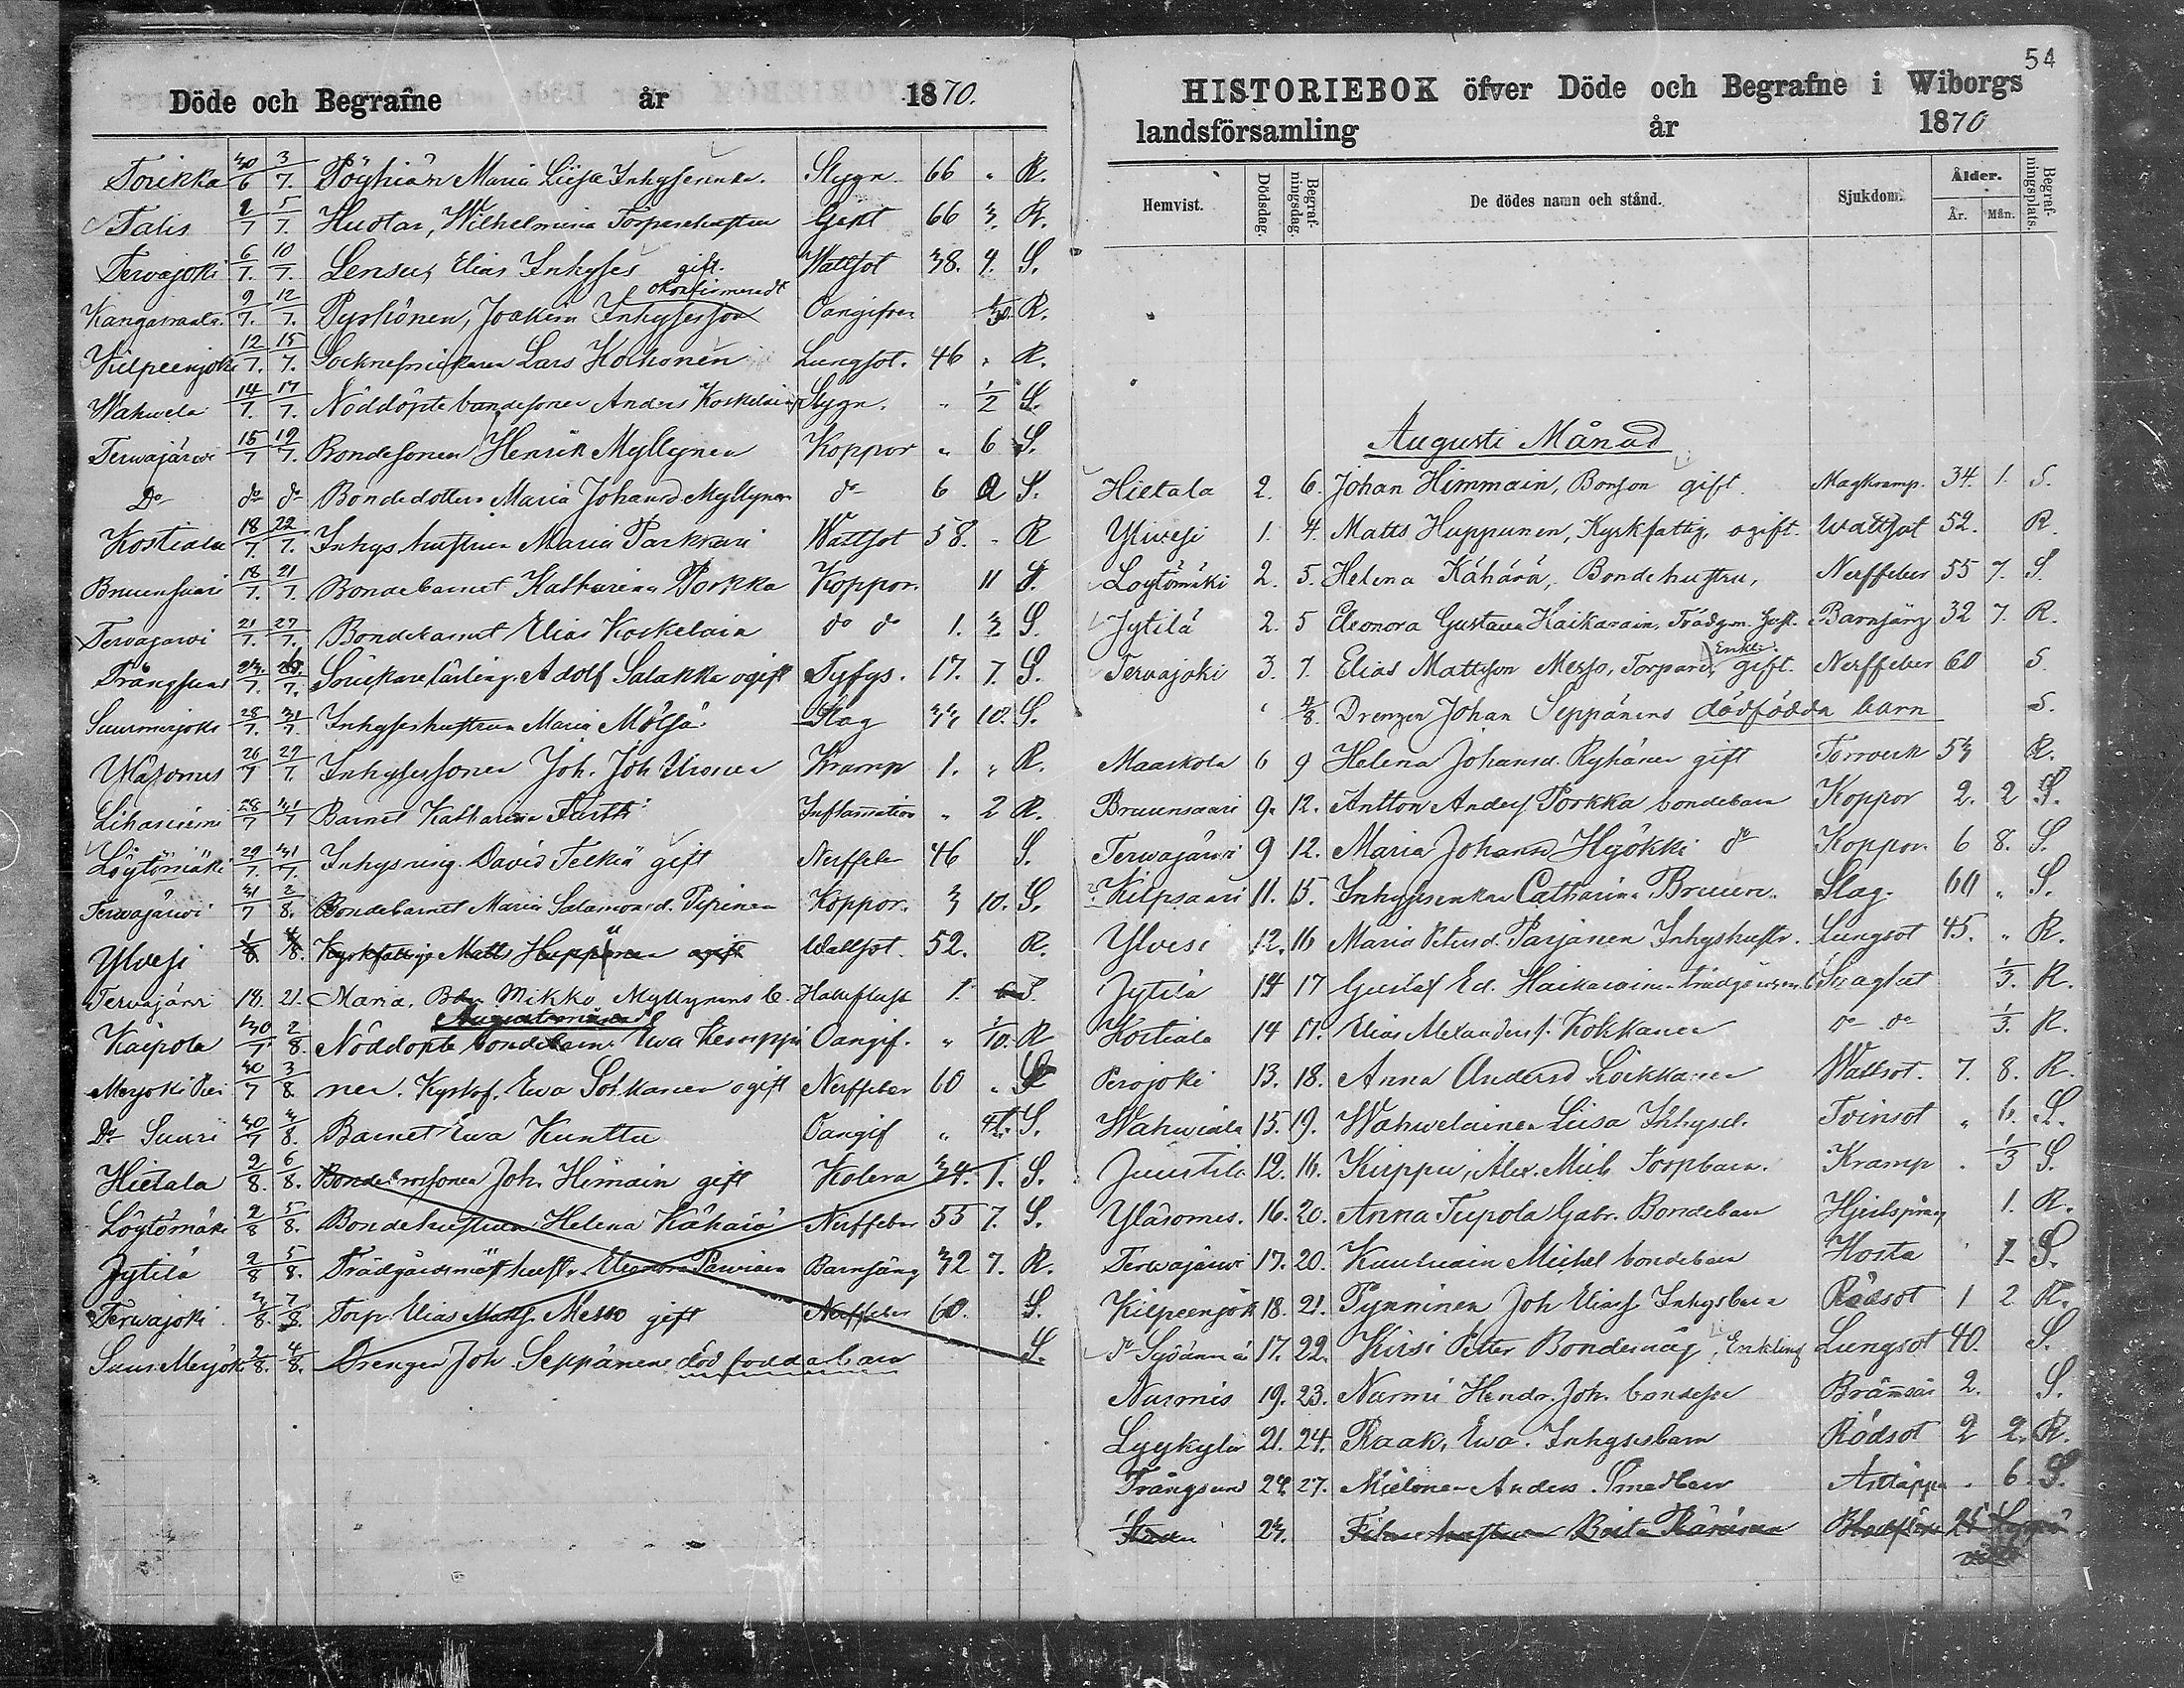 Döde och Begrafne år 1870.
Torikka 30/6 3/7. Pöyhiän Maria Liisa Inhysesenka. Slygn. 66 " R.
Talis 2/7 5/7. Huotar, Wilhelmina Torparehustru Gikt 66 3. R.
Terwajoki 6/7. 10/7. Lensu, Elias Inhyses gift. Wattsot 38. 4. S.
okonfirmeradt
9/7. 12/7. Pyrhönen, Joakim Inhysesson Oangifven R.
Kilpeenjoki 12/7. 15/7. Lars Kolhonen Lungsot. 46 " R.
Wahwela 14/7. 17/7. Nöddöpte bondesonen Anders Koskelain Slygn. " 1/2 S.
Terwajärwi 15/7 19/7. Bondesonen Henrik Myllynen Koppor " 6 S.
Do do do Bondedottern Maria Johansd Myllynen do 6 2 S.
Kostiala 18/7. 22/7. Inhys hustrun Maria Parkkari Wattsot 58. " R
Bruunsaari 18/7. 21/7. Bondebarnet Katharina Porkka Koppor. 11 S.
Terwajarwi 21/7. 27/7. Bondebarnet Elias Koskelain do do 1. 3. S.
Trångsund 23/7. Adolf Salakka ogift Tyfys. 17. 7. S.
Suurmerjoki 28/7. 31/7. Inhyseshustrun Maria Mölsä Slag 33 10. S.
Yläsomes 26/7 29/7. Inhysessonen Joh. Joh Uronen Kramp 1. " R.
28/7 31/7 Barnet Katharina Inflamation " 2 R.
Löytömäki 29/7. 31/7. Inhysning. David Telkiä gift Nerffeber 46 S.
Terwajärwi 31/7 2/8. Bondebarnet Maria Salamonsd. Piirinen Koppor. 3 10. S.
Ylvesi 1/8. 4/8. Kyrkfattige Matts Huppunen ogift Wattsot. 52. R.
Terwajärvi 18. 21. Maria, Mikko Myllynens b. 1. S.
Augusti månad
Kaipola 30/7. 2/8. Nöddöpte bondebarn Ewa Kemppi Oangif. " 1/10. R
30/7 3/8. nen. Kyrkof. Ewa Sohkanen ogift Nerffeber 60 " S
Do Suuri 30/7 3/8. Barnet Ewa Kunttu Oangif " S.
Hietala 2/8. 6/8. Bondesonen Joh. Himain gift Kolera 34. 1. S.
Löytömäki 2/8 5/8. Bondehustrun Helena Kähärä Nerffeber 55 7. S.
Jytilä 2/8 5/8. Trädgårdsmäst hustr. Eleonora Barnsäng 32 7. R.
Terwajoki 3/8. 7/8. Torp. Elias Matts. Messo gift Nerffeber 60. S.
Suur Merjoki 2/8. 4/8. Drengen Joh. Seppänens död födda barn S.
54
HISTORIEBOK öfver Döde och Begrafne i Wiborgs
landsförsamling år 1870
Hemvist. Dödsdag. Begrafningsdag. De dödes namn och stånd. Sjukdom. Ålder. År. Mån. Begrafningsplats.
Augusti Månad
Hietala 2. 6. Johan Himmain, Bonson gift. Magkramp. 34. 1. S.
Yliwesi 1. 4. Matts Huppunen, Kyrkfattig, ogift. Wattsot 52. R.
Loytömäki 2. 5. Helena Kähärä, Bondehustru, Nerffeber 55 7. S.
Jytilä 2. 5 Eleonora Gustava Haikarain, Trädgm. hust. Barnsäng 32 7. R.
Enkli.
Terwajoki 3. 7. Elias Mattsson Messo, Torpare, gift. Nerffeber 60 S.
4/8. Drengen Johan Seppänens dödfödda barn S.
Maaskola 6 9 Helena Johansd. Ryhänen gift Torrverk 53 R.
Bruunsaari 9. 12. Antton Anders Porkka bondebarn Koppor 2. 2 S.
Terwajärwi 9 12. Maria Johansd Hyökki do Koppor. 6 8. S.
Kilpsaari 11. 15. Inhysesenkan Catharina Bruun. Slag. 60 " S.
Ylvesi 12. 16 Maria Petersd. Parjanen Inhyshustr. Lungsot 45. " R.
Jytilä 14 17 Gustaf Ed. Haikarainen trädgårdsm. b Slaglut 1/3. R.
Kostiala 14 17. Elias Alexanders s. Kokkanen do do 1/3. R.
Perojoki 13. 18. Anna Andersd Loikkanen Wattsot. 7. 8. R.
Wahwiala 15. 19. Wahwelainen Liisa Inhysd. Tvinsot " 6. S.
Juustila 12. 16. Kuppu, Alex. Mich. Torpbarn. Kramp . 1/3 S.
Yläsomes. 16. 20. Anna Tiepola Gabr. Bondebarn 1. R.
Terwajärwi 17. 20. Kauhain Michel bondebarn Hosta 1 S.
Kilpeenjoki 18. 21. Pynninen Joh Eliass Inhysbarn Rödsot 1 2 R.
do 17. 22. Kirsi Petter Bondemåg, Enkling Lungsot 40. S.
Nurmis 19. 23. Nurmi Hendr. Joh. bondeson 2. S.
Lyykylä 21. 24. Raak, Ewa. Inhysesbarn Rödsot 2 2. R.
Trångsund 24. 27. Mielonen Anders. Smedbarn . 6. S.
23. hustrun Brita 25